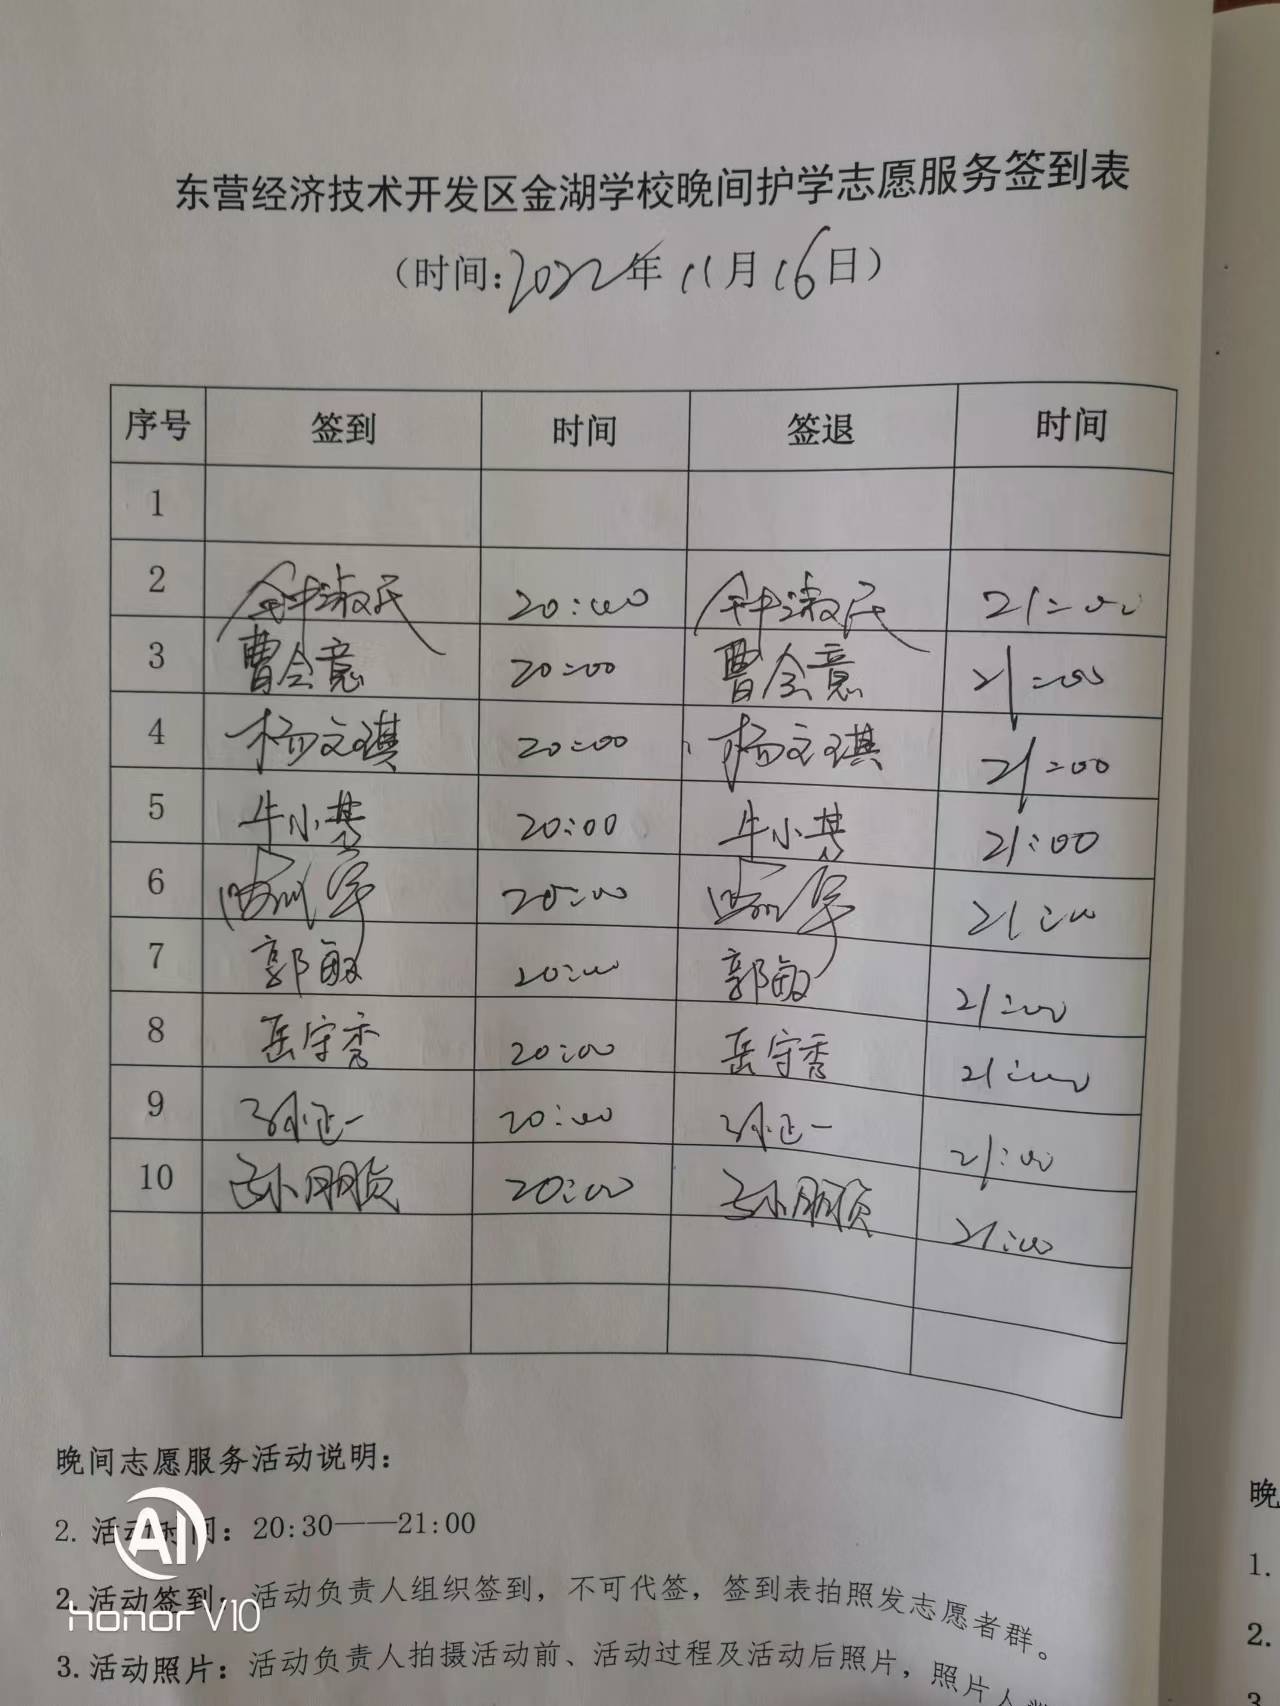 东营经济技术开发区金湖学校晚间护学志愿服务签到表
（时间:2022年11月16日）
序号 签到 时间 签退 时间
1
2 钟淑民 20:00 钟淑民 21:00
3 曹令意 20:00 曹令意 21:00
4 杨文琪 20:00 杨文琪 21:00
5 牛小慧 20:00 牛小慧 21:00
6 20:00 21:00
7 郭敏 20:00 郭敏 21:00
8 岳守秀 20:00 岳守秀 21:00
9 孙正一 20:00 孙正一 21:00
10 孙朋贞 20:00 孙朋贞 21:00
晚间志愿服务活动说明：
2. 活动时间：20:30——21:00
2. 活动签到：活动负责人组织签到，不可代签，签到表拍照发志愿者群。
3. 活动照片：活动负责人拍摄活动前、活动过程及活动后照片，照片人数
AI
honor V10
晚
1.
2.
3